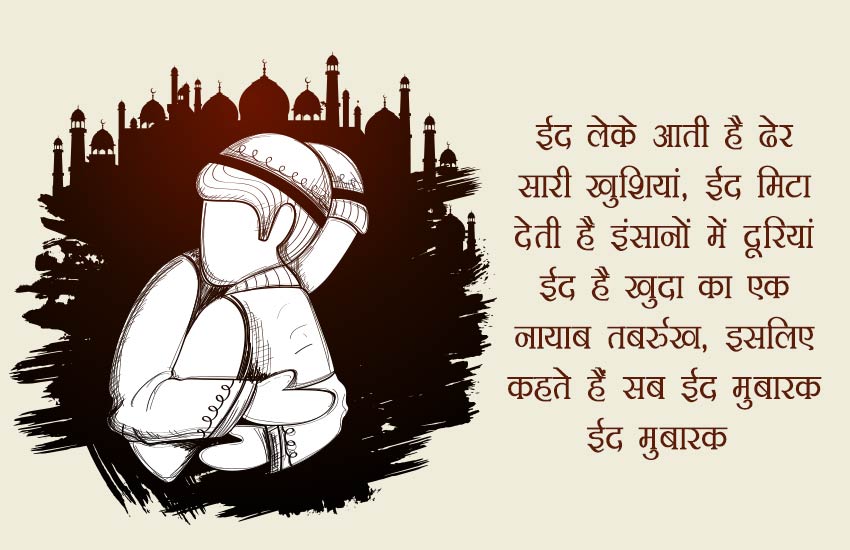 ईद लेके आती है ढेर
सारी खुशियां, ईद मिटा
देती है इंसानों में दूरियां
ईद है खुदा का एक
नायाब तबर्रुख, इसलिए
कहते हैं सब ईद मुबारक
ईद मुबारक